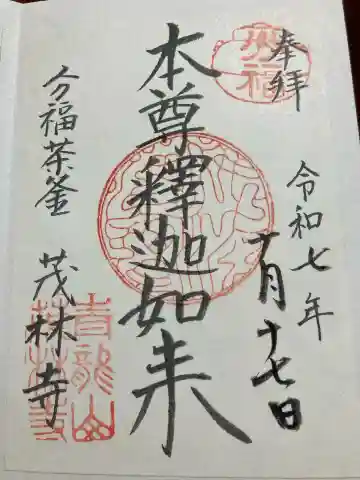 奉拝
令和七年
十月十七日
本尊釋迦如来
分福茶釜 茂林寺
分福
青龍山
茂林寺